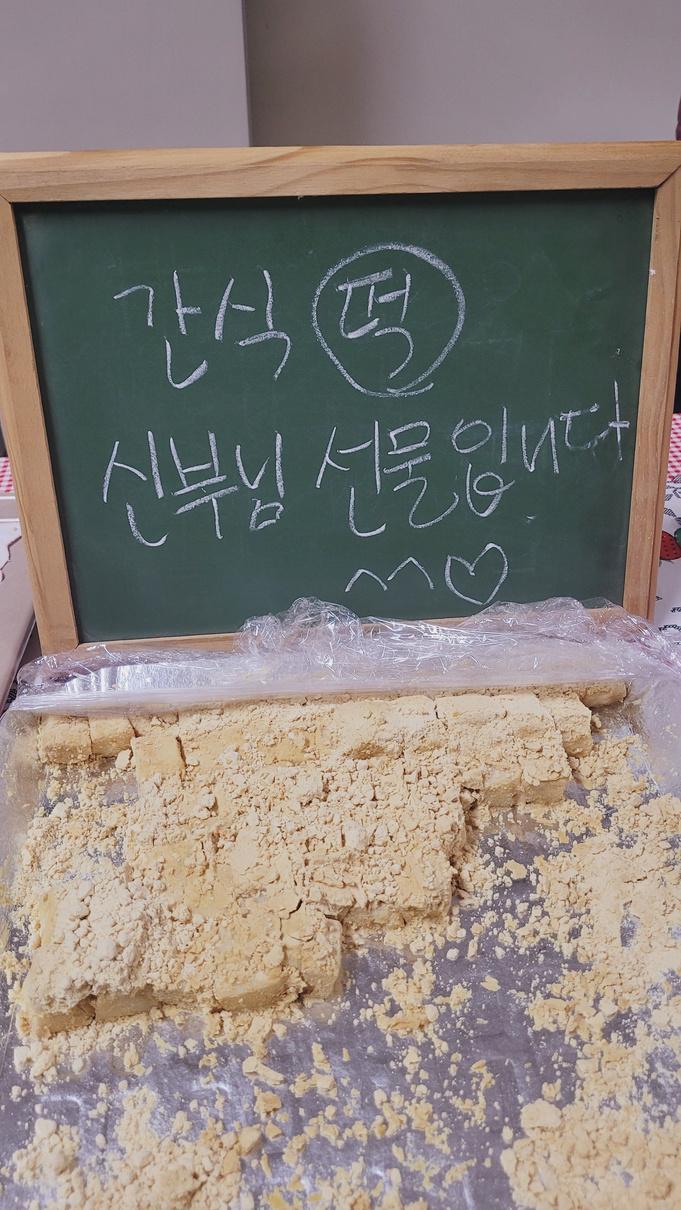 간식 떡
신부님 선물입니다
^^♡